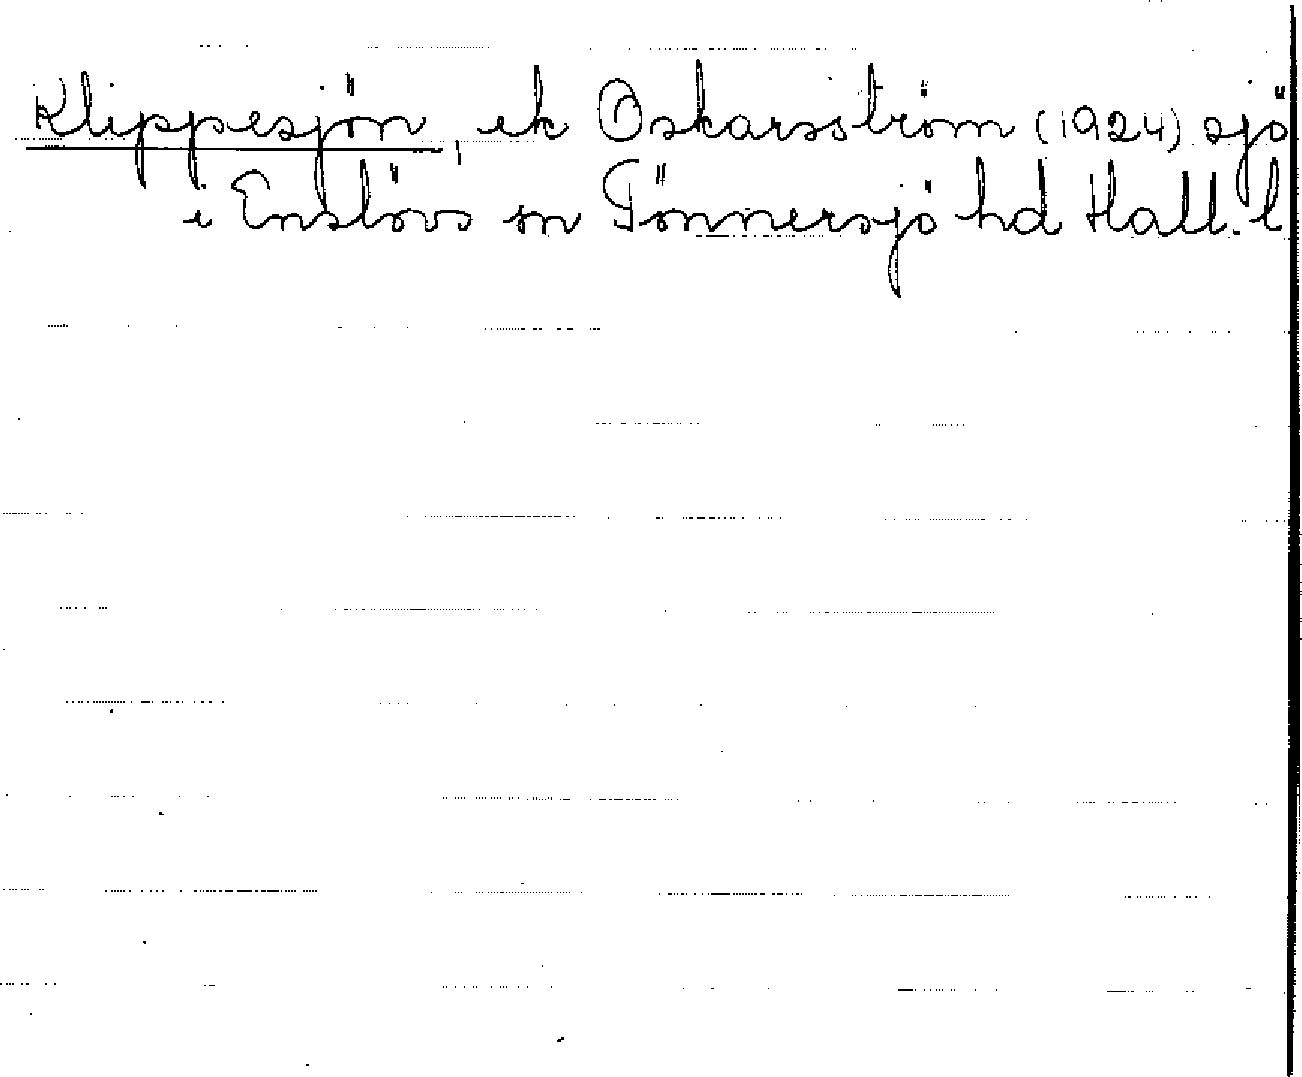 Klippesjön, ek Oskarsström (1924) sjö
i Enslövs sn Tönnersjö hd Hall. l